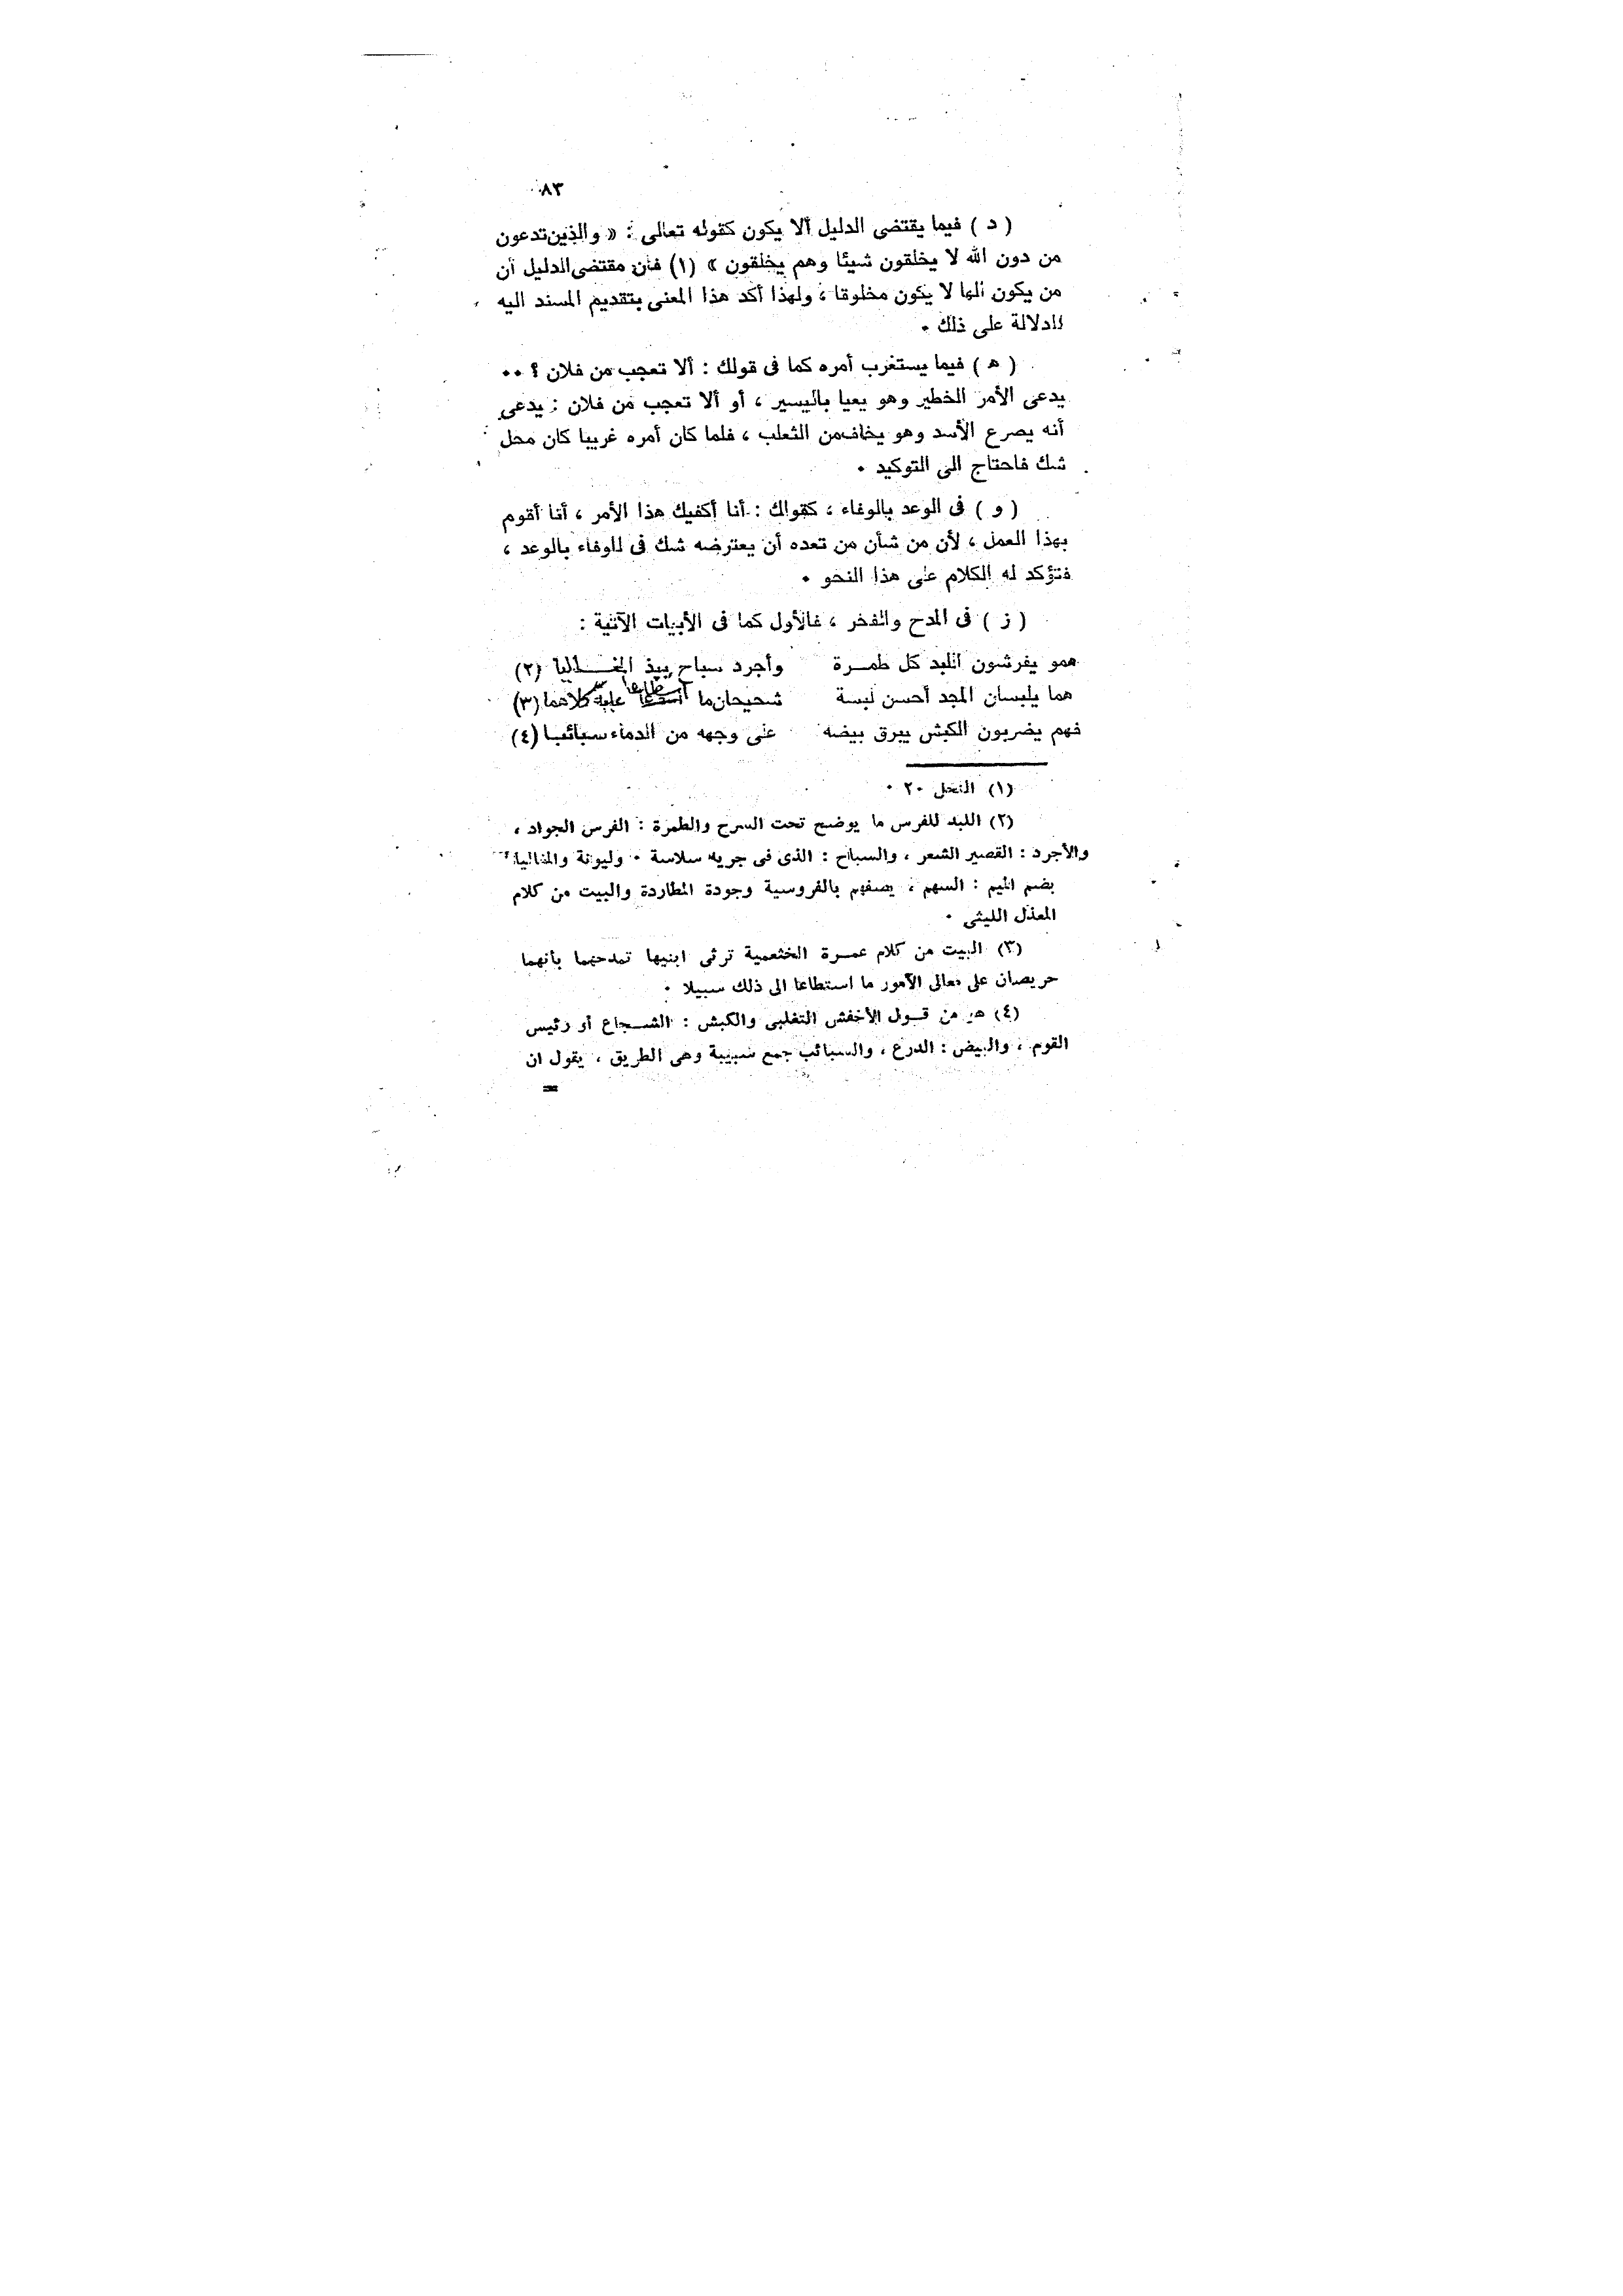 ٨٣
( د ) فيما يقتضى الدليل ألا يكون كقوله تعالى : « والذين تدعون
من دون الله لا يخلقون شيئا وهم يخلقون » (١) فان مقتضى الدليل أن
من يكون الها لا يكون مخلوقا ، ولهذا أكد هذا المعنى بتقديم المسند اليه
للدلالة على ذلك .
( ه ) فيما يستغرب أمره كما فى قولك : ألا تعجب من فلان ؟ ..
يدعى الأمر الخطير وهو يعيا باليسير ، أو ألا تعجب من فلان : يدعى
أنه يصرع الأسد وهو يخاف من الثعلب ، فلما كان أمره غريبا كان محل
شك فاحتاج الى التوكيد .
( و ) فى الوعد بالوفاء ، كقولك : أنا أكفيك هذا الأمر ، أنا أقوم
بهذا العمل ، لأن من شأن من تعده أن يعترضه شك فى الوفاء بالوعد ،
فتؤكد له الكلام على هذا النحو .
( ز ) فى المدح والفخر ، فالأول كما فى الأبيات الآتية :
همو يفرشون اللبد كل طمرة وأجرد سباح يبذ المغاليا (٢)
هما يلبسان المجد أحسن لبسة شحيحان ما اسطاعا عليه كلاهما (٣)
فهم يضربون الكبش يبرق بيضه على وجهه من الدماء سبائبا (٤)
(١) النحل ٢٠ .
(٢) اللبد للفرس ما يوضح تحت السرح والطمرة : الفرس الجواد ،
والأجرد : القصير الشعر ، والسباح : الذى فى جريه سلاسة . وليونة والمغاليا
بضم الميم : السهم ، يصفهم بالفروسية وجودة المطاردة والبيت من كلام
المعذل الليثى .
(٣) البيت من كلام عمرة الخثعمية ترثى ابنيها تمدحهما بأنهما
حريصان على معالى الأمور ما استطاعا الى ذلك سبيلا .
(٤) هو من قول الأخفش التغلبى والكبش : الشجاع أو رئيس
القوم ، والبيض : الدرع ، والسبائب جمع سبيبة وهى الطريق ، يقول ان
=